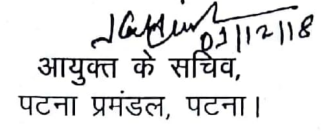 01/12/18
आयुक्त के सचिव,
पटना प्रमंडल, पटना।